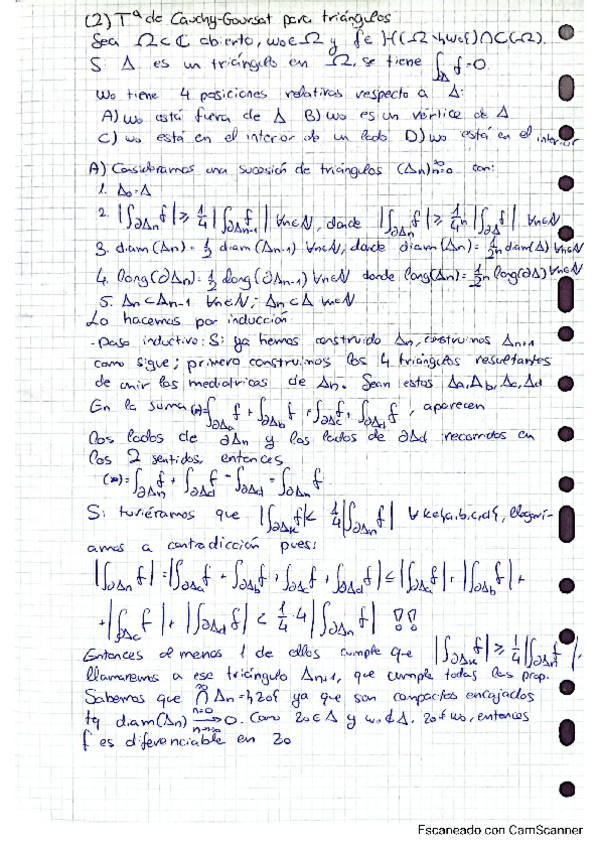 (2) Tª de Cauchy-Goursat para triángulos
Sea Ω⊂ℂ abierto, w₀∈Ω y f∈H(Ω∖{w₀})∩C(Ω).
Si Δ es un triángulo en Ω, se tiene ∫_∂Δ f=0.
w₀ tiene 4 posiciones relativas respecto a Δ:
A) w₀ está fuera de Δ B) w₀ es un vértice de Δ
C) w₀ está en el interior de un lado D) w₀ está en el interior
A) Consideramos una sucesión de triángulos (Δn)_{n=0}^∞ con:
1. Δ₀=Δ
2. |∫_∂Δn f| ≥ 1/4 |∫_∂Δn-1 f| ∀n∈ℕ, donde |∫_∂Δn f| ≥ 1/4ⁿ |∫_∂Δ f| ∀n∈ℕ
3. diam(Δn)=1/2 diam(Δn-1) ∀n∈ℕ, donde diam(Δn)=1/2ⁿ diam(Δ) ∀n∈ℕ
4. long(∂Δn)=1/2 long(∂Δn-1) ∀n∈ℕ donde long(Δn)=1/2ⁿ long(∂Δ) ∀n∈ℕ
5. Δn⊂Δn-1 ∀n∈ℕ; Δn⊂Δ ∀n∈ℕ
Lo hacemos por inducción
-Paso inductivo: Si ya hemos construido Δn, construimos Δn+1
como sigue; primero construimos los 4 triángulos resultantes
de unir las mediatrices de Δn. Sean estos Δa, Δb, Δc, Δd
En la suma (*)=∫_∂Δa f + ∫_∂Δb f + ∫_∂Δc f + ∫_∂Δd f, aparecen
los lados de ∂Δn y los lados de ∂Δd recorridos en
los 2 sentidos, entonces
(*)=∫_∂Δn f + ∫_∂Δd f - ∫_∂Δd f = ∫_∂Δn f
Si tuviéramos que |∫_∂Δk f| < 1/4 |∫_∂Δn f| ∀k∈{a,b,c,d}, llegarí-
amos a contradicción pues:
|∫_∂Δn f| = |∫_∂Δa f + ∫_∂Δb f + ∫_∂Δc f + ∫_∂Δd f| ≤ |∫_∂Δa f| + |∫_∂Δb f| +
+ |∫_∂Δc f| + |∫_∂Δd f| < 1/4·4 |∫_∂Δn f| !!
Entonces al menos 1 de ellos cumple que |∫_∂Δk f| ≥ 1/4 |∫_∂Δn f|,
llamaremos a ese triángulo Δn+1, que cumple todas las prop.
Sabemos que ∩_{n=0}^∞ Δn={z₀} ya que son compactos encajados
tq diam(Δn) →_{n→∞} 0. Como z₀∈Δ y w₀∉Δ, z₀≠w₀, entonces
f es diferenciable en z₀
Escaneado con CamScanner